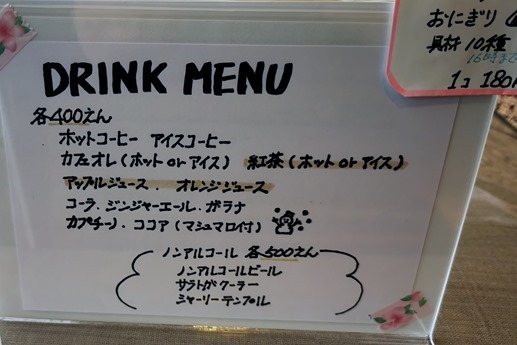 DRINK MENU
各400えん
ホットコーヒー アイスコーヒー
カフェオレ(ホット or アイス) 紅茶(ホット or アイス)
アップルジュース. オレンジジュース
コーラ. ジンジャーエール. ガラナ
カプチーノ. ココア(マシュマロ付)
ノンアルコール 各500えん
ノンアルコールビール
サラトガクーラー
シャーリーテンプル
おにぎり
具材10種
16時まで
1コ 180